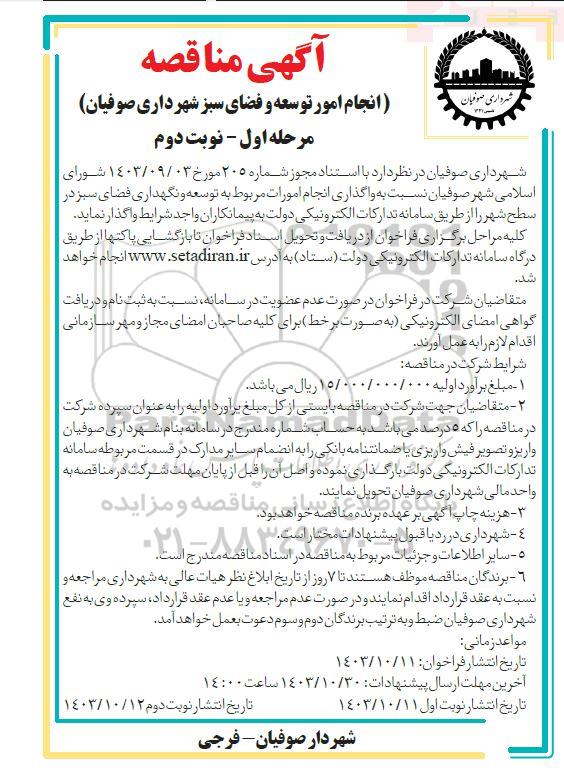 آگهی مناقصه
(انجام امور توسعه و فضای سبز شهرداری صوفیان)
مرحله اول - نوبت دوم
شهرداری صوفیان
تاسیس ۱۳۳۱
شهرداری صوفیان در نظر دارد با استناد مجوز شماره ۲۰۵ مورخ ۱۴۰۳/۰۹/۰۳ شورای
اسلامی شهر صوفیان نسبت به واگذاری انجام امورات مربوط به توسعه و نگهداری فضای سبز در
سطح شهر را از طریق سامانه تدارکات الکترونیکی دولت به پیمانکاران واجد شرایط واگذار نماید.
کلیه مراحل برگزاری فراخوان از دریافت و تحویل اسناد فراخوان تا بازگشایی پاکتها از طریق
درگاه سامانه تدارکات الکترونیکی دولت (ستاد) به آدرس www.setadiran.ir انجام خواهد
شد.
متقاضیان شرکت در فراخوان در صورت عدم عضویت در سامانه، نسبت به ثبت نام و دریافت
گواهی امضای الکترونیکی (به صورت برخط) برای کلیه صاحبان امضای مجاز و مهر سازمانی
اقدام لازم را به عمل آورند.
شرایط شرکت در مناقصه:
۱-مبلغ برآورد اولیه ۱۵/۰۰۰/۰۰۰/۰۰۰ ریال می باشد.
۲-متقاضیان جهت شرکت در مناقصه بایستی از کل مبلغ برآورد اولیه را به عنوان سپرده شرکت
در مناقصه را که ۵ درصد می باشد به حساب شماره مندرج در سامانه بنام شهرداری صوفیان
واریز و تصویر فیش واریزی یا ضمانتنامه بانکی را به انضمام سایر مدارک در قسمت مربوطه سامانه
تدارکات الکترونیکی دولت بارگذاری نموده و اصل آن را قبل از پایان مهلت شرکت در مناقصه به
واحد مالی شهرداری صوفیان تحویل نمایند.
۳-هزینه چاپ آگهی بر عهده برنده مناقصه خواهد بود.
۴-شهرداری در رد یا قبول پیشنهادات مختار است.
۵-سایر اطلاعات و جزئیات مربوط به مناقصه در اسناد مناقصه مندرج است.
۶-برندگان مناقصه موظف هستند تا ۷ روز از تاریخ ابلاغ نظر هیات عالی به شهرداری مراجعه و
نسبت به عقد قرارداد اقدام نمایند و در صورت عدم مراجعه و یا عدم عقد قرارداد، سپرده وی به نفع
شهرداری صوفیان ضبط و به ترتیب برندگان دوم و سوم دعوت بعمل خواهد آمد.
مواعد زمانی:
تاریخ انتشار فراخوان: ۱۴۰۳/۱۰/۱۱
آخرین مهلت ارسال پیشنهادات: ۱۴۰۳/۱۰/۳۰ ساعت ۱۴:۰۰
تاریخ انتشار نوبت اول ۱۴۰۳/۱۰/۱۱ تاریخ انتشار نوبت دوم ۱۴۰۳/۱۰/۱۲
شهردار صوفیان - فرجی
پایگاه اطلاع رسانی مناقصه و مزایده
۰۲۱-۸۸۳۴۹۶۷۰-۵